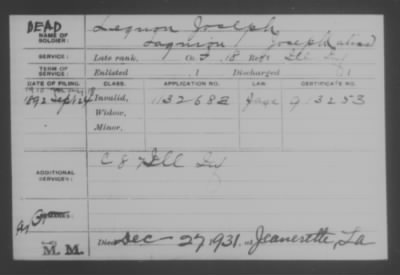 DEAD Legnon Joseph
NAME OF SOLDIER: Lagnion Joseph alias
SERVICE: Late rank, Co. 18 Reg't Ill Inf
TERM OF SERVICE: Enlisted 1 Discharged 1
DATE OF FILING. CLASS. APPLICATION NO. LAW. CERTIFICATE NO.
1892 Sept 24 Invalid, 1132682 913253
Widow,
Minor,
ADDITIONAL SERVICES: C 8 Ill Inf
M. M. Died Dec 27, 1931, at Jeanerette, La